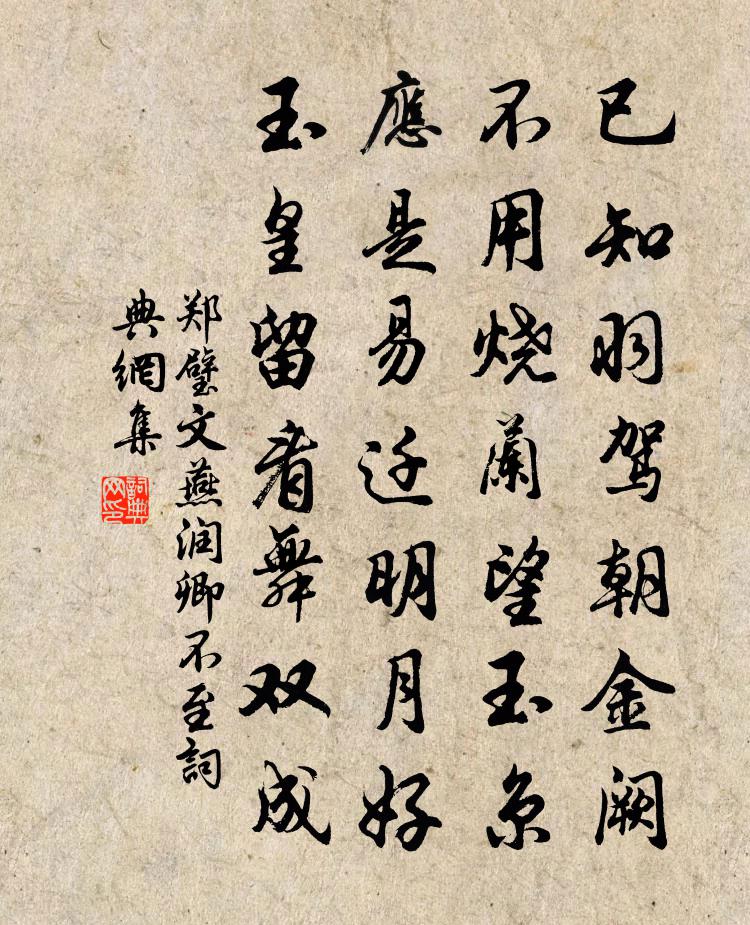 已知羽驾朝金阙
不用烧蘭望玉京
應是易迁明月好
玉皇留看舞双成
郑璧文燕润卿不至詞
典網集
詞典
网印